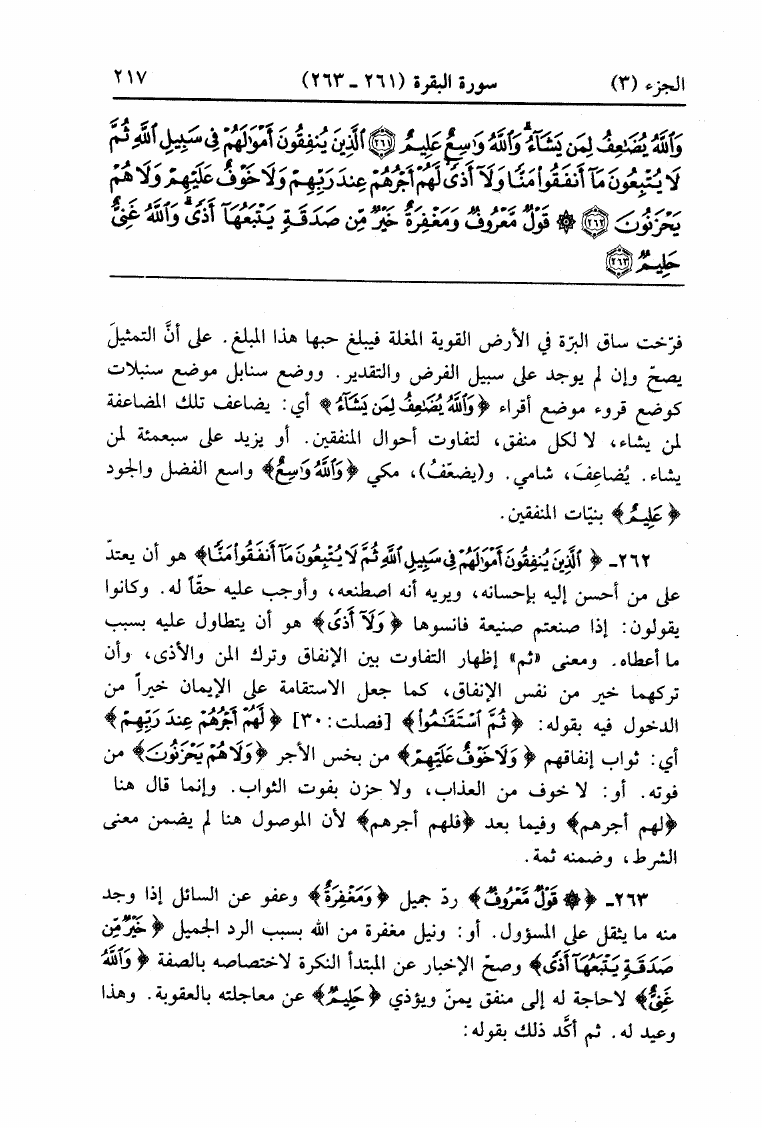 الجزء (٣) سورة البقرة (٢٦١ ـ ٢٦٣) ٢١٧
وَٱللَّهُ يُضَٰعِفُ لِمَن يَشَآءُۗ وَٱللَّهُ وَٰسِعٌ عَلِيمٌ ﴿٢٦١﴾ ٱلَّذِينَ يُنفِقُونَ أَمْوَٰلَهُمْ فِى سَبِيلِ ٱللَّهِ ثُمَّ
لَا يُتْبِعُونَ مَآ أَنفَقُوا۟ مَنًّا وَلَآ أَذًىۙ لَّهُمْ أَجْرُهُمْ عِندَ رَبِّهِمْ وَلَا خَوْفٌ عَلَيْهِمْ وَلَا هُمْ
يَحْزَنُونَ ﴿٢٦٢﴾ ۞ قَوْلٌ مَّعْرُوفٌ وَمَغْفِرَةٌ خَيْرٌ مِّن صَدَقَةٍ يَتْبَعُهَآ أَذًىۗ وَٱللَّهُ غَنِىٌّ
حَلِيمٌ ﴿٢٦٣﴾
فرّخت ساق البرّة في الأرض القوية المغلة فيبلغ حبها هذا المبلغ. على أنَّ التمثيلَ
يصحّ وإن لم يوجد على سبيل الفرض والتقدير. ووضع سنابل موضع سنبلات
كوضع قروء موضع أقراء ﴿وَٱللَّهُ يُضَٰعِفُ لِمَن يَشَآءُ﴾ أي: يضاعف تلك المضاعفة
لمن يشاء، لا لكل منفق، لتفاوت أحوال المنفقين. أو يزيد على سبعمئة لمن
يشاء. يُضاعِفَ، شامي. و(يضعّفُ)، مكي ﴿وَٱللَّهُ وَٰسِعٌ﴾ واسع الفضل والجود
﴿عَلِيمٌ﴾ بنيّات المنفقين.
٢٦٢ـ ﴿ٱلَّذِينَ يُنفِقُونَ أَمْوَٰلَهُمْ فِى سَبِيلِ ٱللَّهِ ثُمَّ لَا يُتْبِعُونَ مَآ أَنفَقُوا۟ مَنًّا﴾ هو أن يعتدّ
على من أحسن إليه بإحسانه، ويريه أنه اصطنعه، وأوجب عليه حقّاً له. وكانوا
يقولون: إذا صنعتم صنيعة فانسوها ﴿وَلَآ أَذًى﴾ هو أن يتطاول عليه بسبب
ما أعطاه. ومعنى «ثم» إظهار التفاوت بين الإنفاق وترك المن والأذى، وأن
تركهما خير من نفس الإنفاق، كما جعل الاستقامة على الإيمان خيراً من
الدخول فيه بقوله: ﴿ثُمَّ ٱسْتَقَٰمُوا۟﴾ [فصلت: ٣٠] ﴿لَّهُمْ أَجْرُهُمْ عِندَ رَبِّهِمْ﴾
أي: ثواب إنفاقهم ﴿وَلَا خَوْفٌ عَلَيْهِمْ﴾ من بخس الأجر ﴿وَلَا هُمْ يَحْزَنُونَ﴾ من
فوته. أو: لا خوف من العذاب، ولا حزن بفوت الثواب. وإنما قال هنا
﴿لهم أجرهم﴾ وفيما بعد ﴿فلهم أجرهم﴾ لأن الموصول هنا لم يضمن معنى
الشرط، وضمنه ثمة.
٢٦٣ـ ﴿۞ قَوْلٌ مَّعْرُوفٌ﴾ ردّ جميل ﴿وَمَغْفِرَةٌ﴾ وعفو عن السائل إذا وجد
منه ما يثقل على المسؤول. أو: ونيل مغفرة من الله بسبب الرد الجميل ﴿خَيْرٌ مِّن
صَدَقَةٍ يَتْبَعُهَآ أَذًى﴾ وصحّ الإخبار عن المبتدأ النكرة لاختصاصه بالصفة ﴿وَٱللَّهُ
غَنِىٌّ﴾ لا حاجة له إلى منفق يمنّ ويؤذي ﴿حَلِيمٌ﴾ عن معاجلته بالعقوبة. وهذا
وعيد له. ثم أكَّد ذلك بقوله: